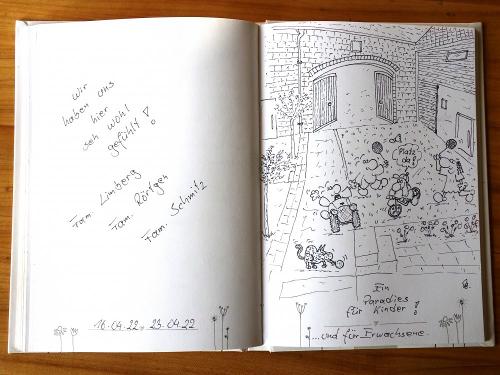 Wir
haben uns
hier
sehr wohl
gefühlt!
Fam. Limberg
Fam. Röttgen
Fam. Schmitz
16.04.22 - 23.04.22
Platz
da!
Ein
Paradies
für Kinder!
...und für Erwachsene.